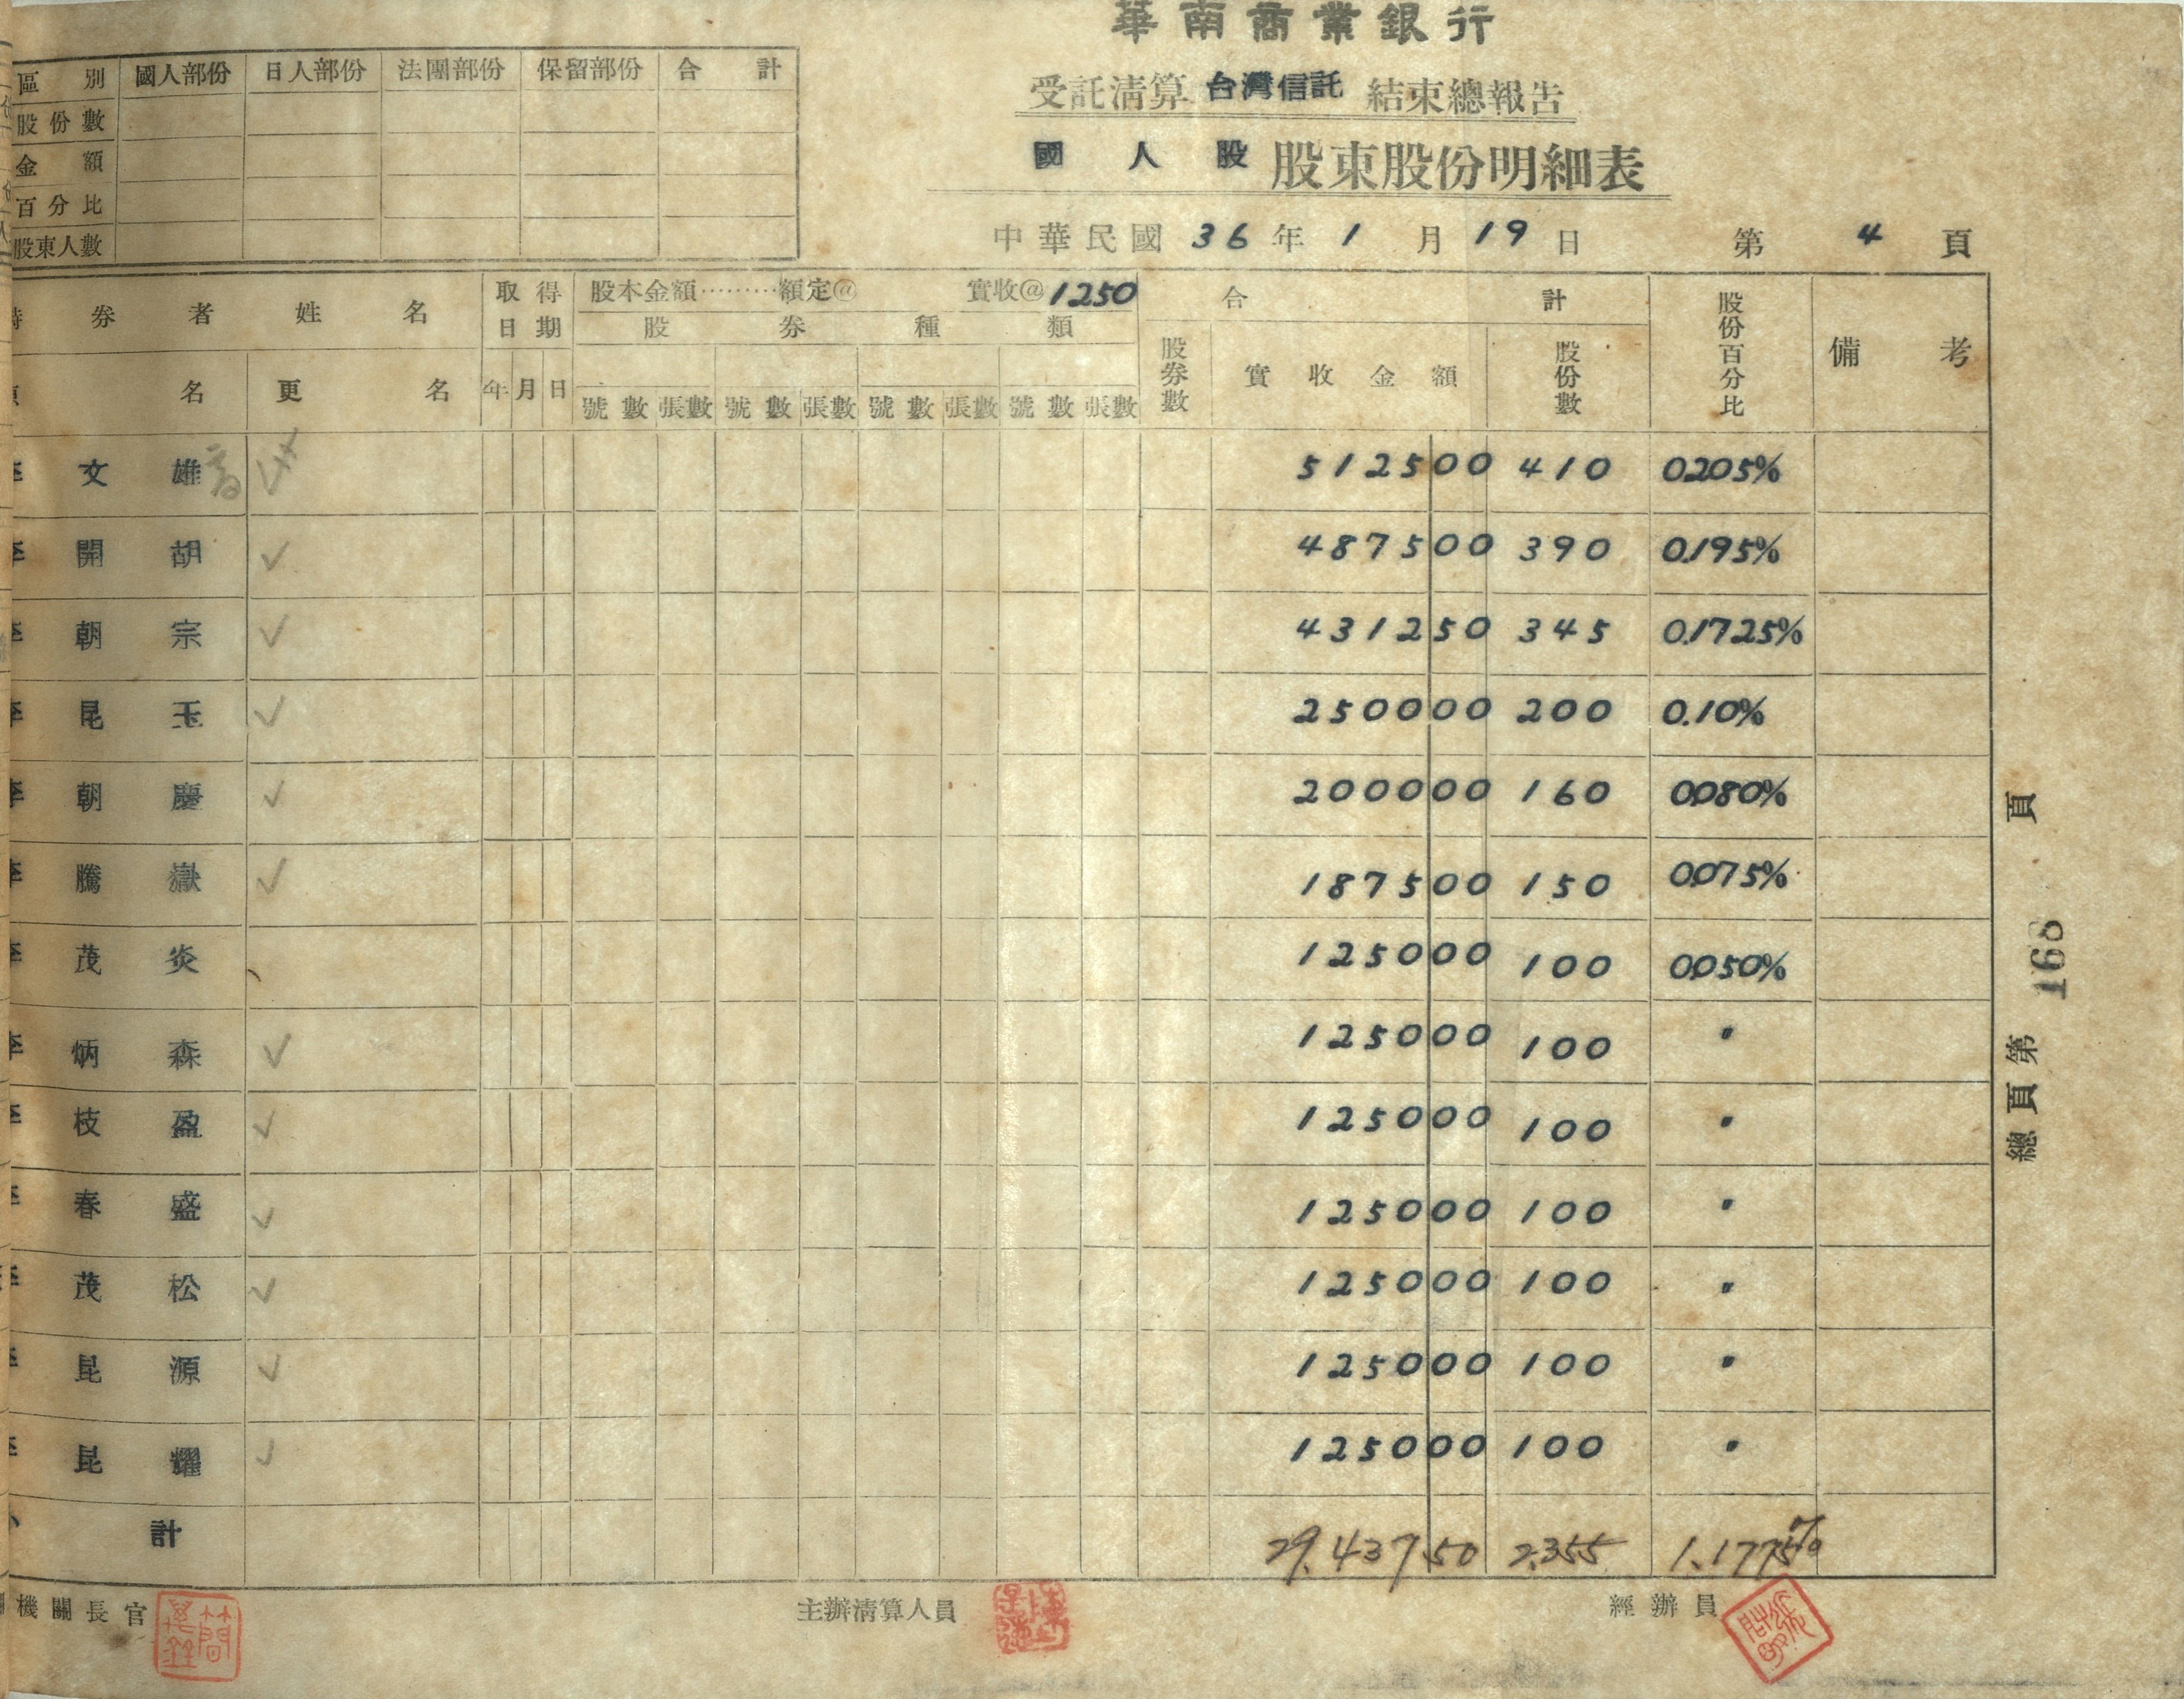 華南商業銀行
受託清算 台灣信託 結束總報告
國人股 股東股份明細表
中華民國 36 年 1 月 19 日 第 4 頁
區別 國人部份 日人部份 法團部份 保留部份 合計
股份數
金額
百分比
股東人數
券者姓名 取得日期 股本金額………額定@ 實收@1250 合計 股份百分比 備考
股券種類 股券數 實收金額 股份數
名 更名 年 月 日 號數 張數 號數 張數 號數 張數 號數 張數
李文雄 512500 410 0.205%
李開胡 487500 390 0.195%
李朝宗 431250 345 0.1725%
李昆玉 250000 200 0.10%
李朝慶 200000 160 0.080%
李騰嶽 187500 150 0.075%
李茂炎 125000 100 0.050%
李炳森 125000 100 〃
李枝盈 125000 100 〃
李春盛 125000 100 〃
李茂松 125000 100 〃
李昆源 125000 100 〃
李昆耀 125000 100 〃
計 29,437.50 2,355 1.1775%
機關長官 主辦清算人員 經辦員
總頁第 168 頁